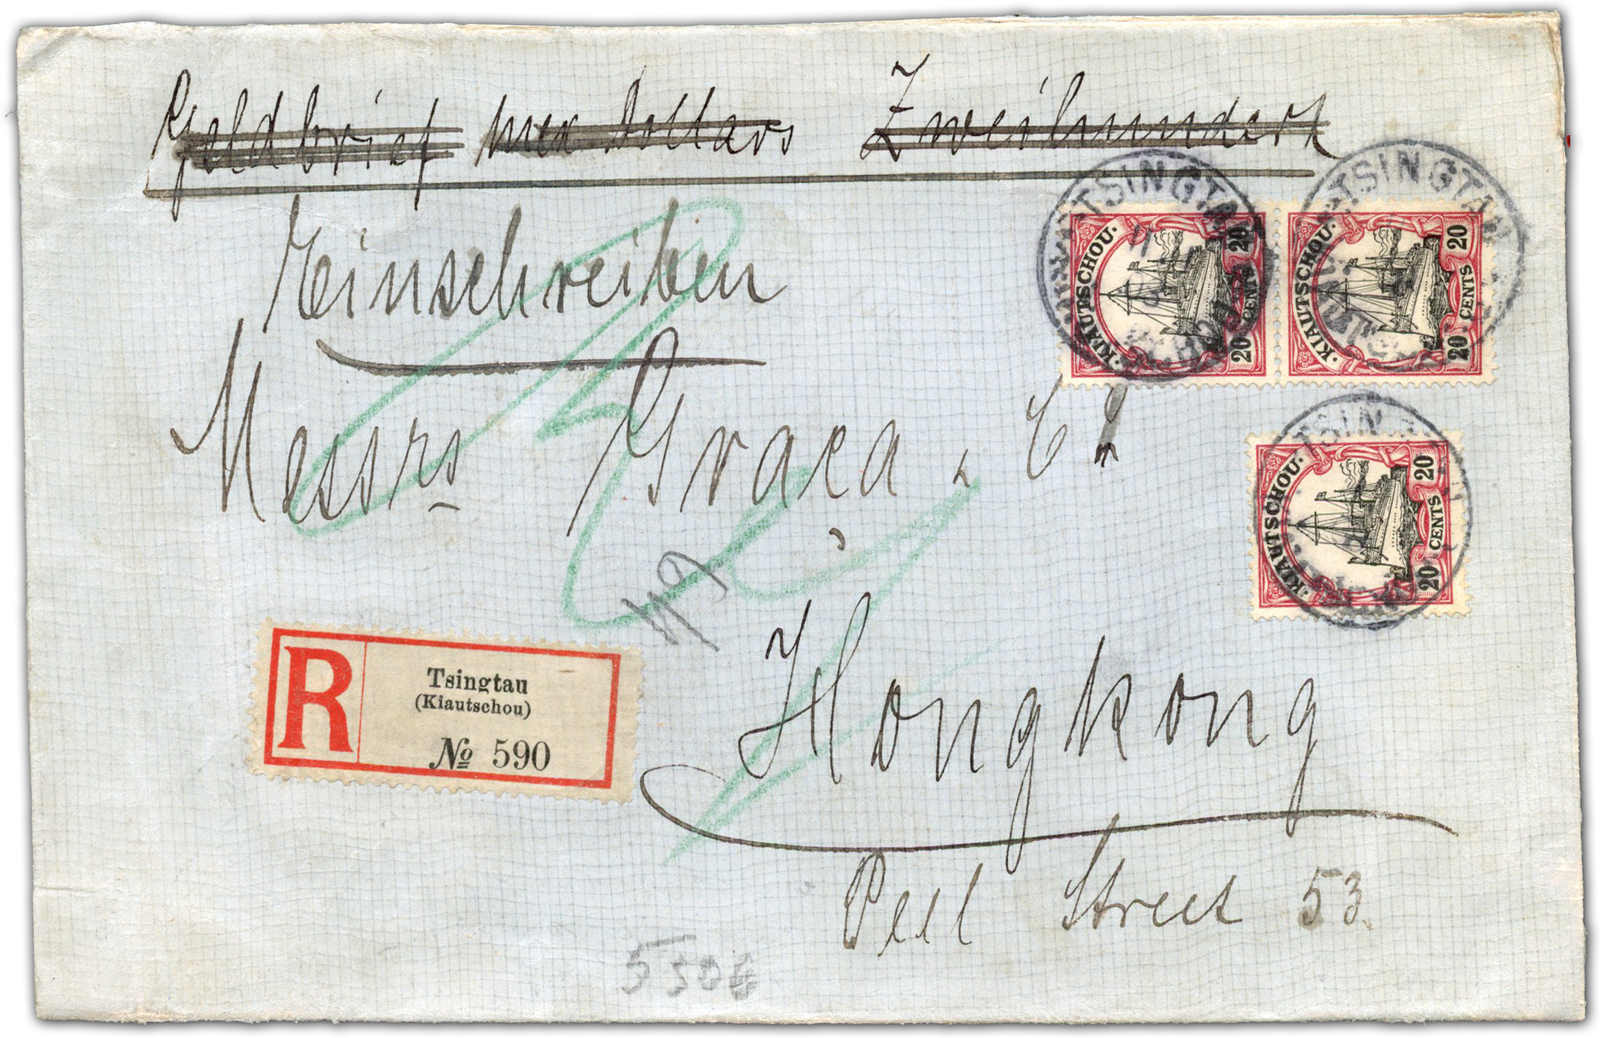 Geldbrief mex Dollars Zweihundert
Einschreiben
Messrs Graça & Co
Hongkong
Peel Street 53
R
Tsingtau
(Kiautschou)
№ 590
TSINGTAU
KIAUTSCHOU
20 CENTS 20
TSINGTAU
KIAUTSCHOU
20 CENTS 20
TSINGTAU
KIAUTSCHOU
20 CENTS 20